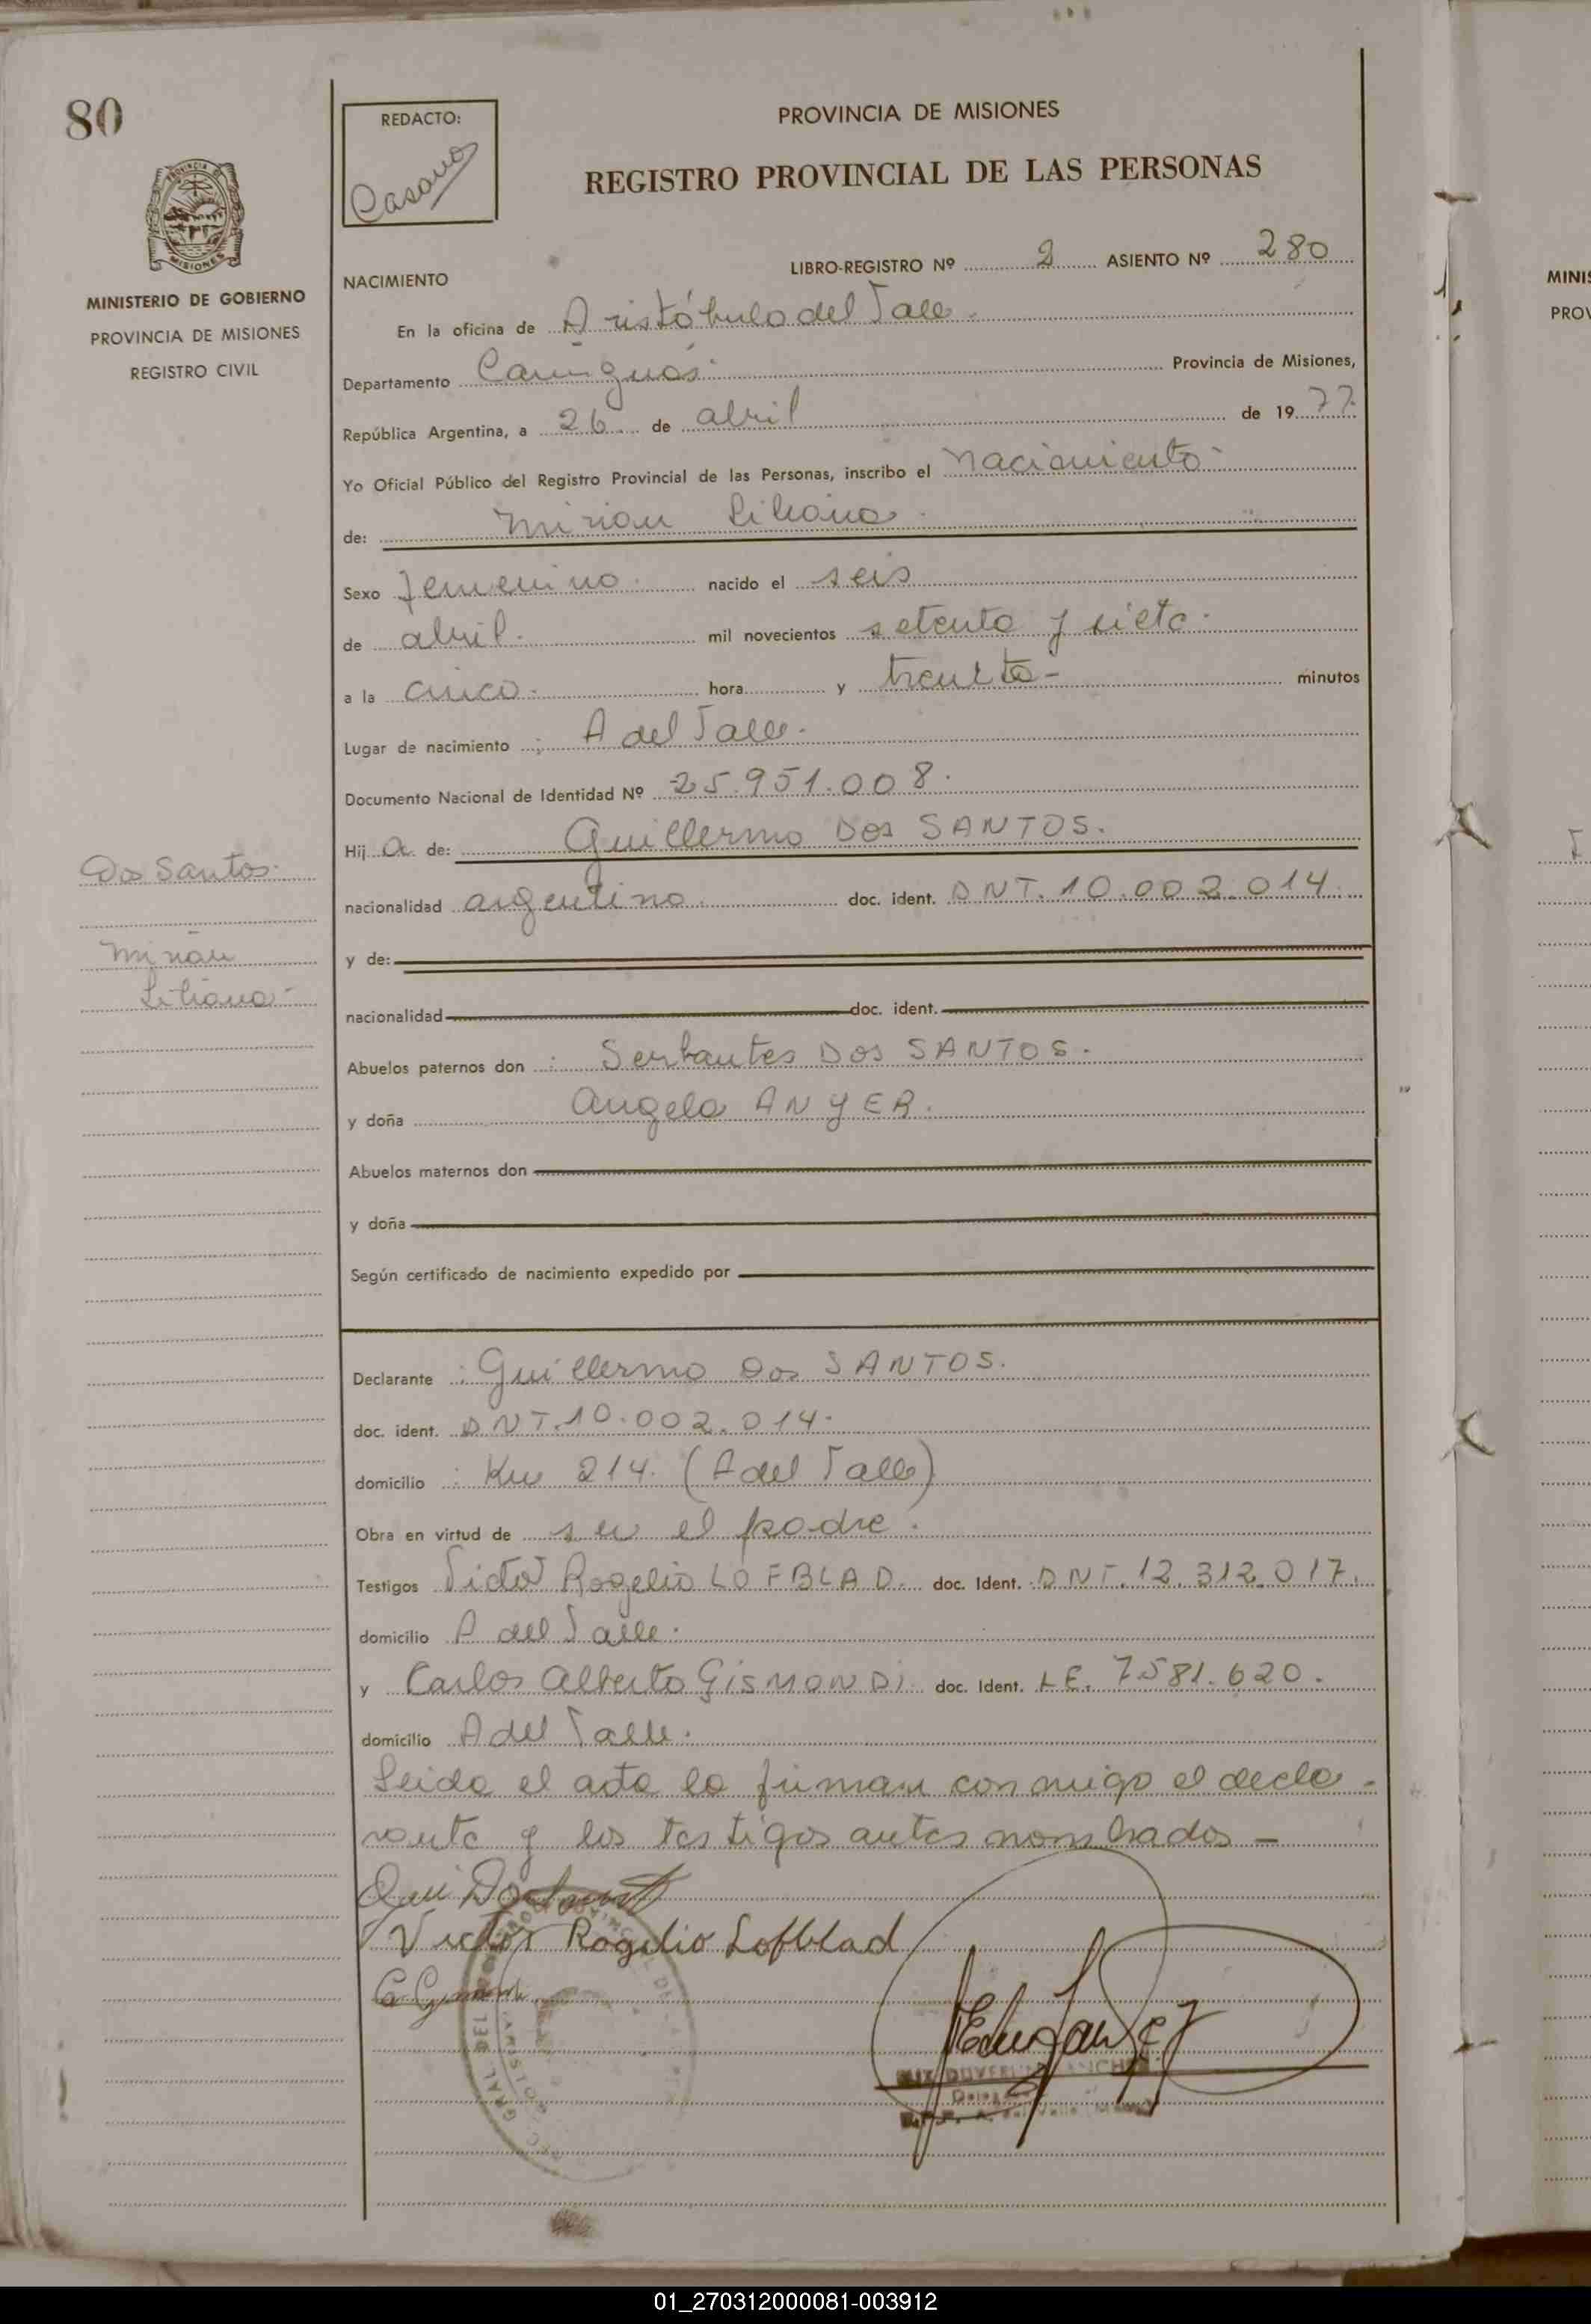 80
REDACTO:
Casano
PROVINCIA DE MISIONES
REGISTRO PROVINCIAL DE LAS PERSONAS
MISIONES
MINISTERIO DE GOBIERNO
PROVINCIA DE MISIONES
REGISTRO CIVIL
LIBRO-REGISTRO Nº 2 ASIENTO Nº 280
NACIMIENTO
En la oficina de Aristóbulo del Valle.
Departamento Cainguás. Provincia de Misiones,
República Argentina, a 26 de abril de 1977.
Yo Oficial Público del Registro Provincial de las Personas, inscribo el nacimiento
de: Mirian Liliana.
Sexo femenino. nacido el seis
de abril. mil novecientos setenta y siete.
a la cinco. hora y treinta- minutos
Lugar de nacimiento : A del Valle.
Documento Nacional de Identidad Nº 25.951.008.
Hija de: Guillermo Dos SANTOS.
nacionalidad argentino. doc. ident. DNI. 10.002.014.
y de:
nacionalidad doc. ident.
Abuelos paternos don : Serbantes Dos SANTOS.
y doña Angela ANYER.
Abuelos maternos don
y doña
Según certificado de nacimiento expedido por
Dos Santos.
Mirian
Liliana-
Declarante : Guillermo Dos SANTOS.
doc. ident. DNI. 10.002.014.
domicilio : Km 214. (A del Valle)
Obra en virtud de ser el padre.
Testigos Victor Rogelio LOFBLAD. doc. Ident. DNI. 12.312.017.
domicilio A del Valle.
y Carlos Alberto GISMONDI. doc. Ident. L.E. 7581.620.
domicilio A del Valle.
Leida el acta la firman conmigo el decla-
rante y los testigos antes nombrados-
Victor Rogelio Lofblad
MINIS
PROV
01_270312000081-003912